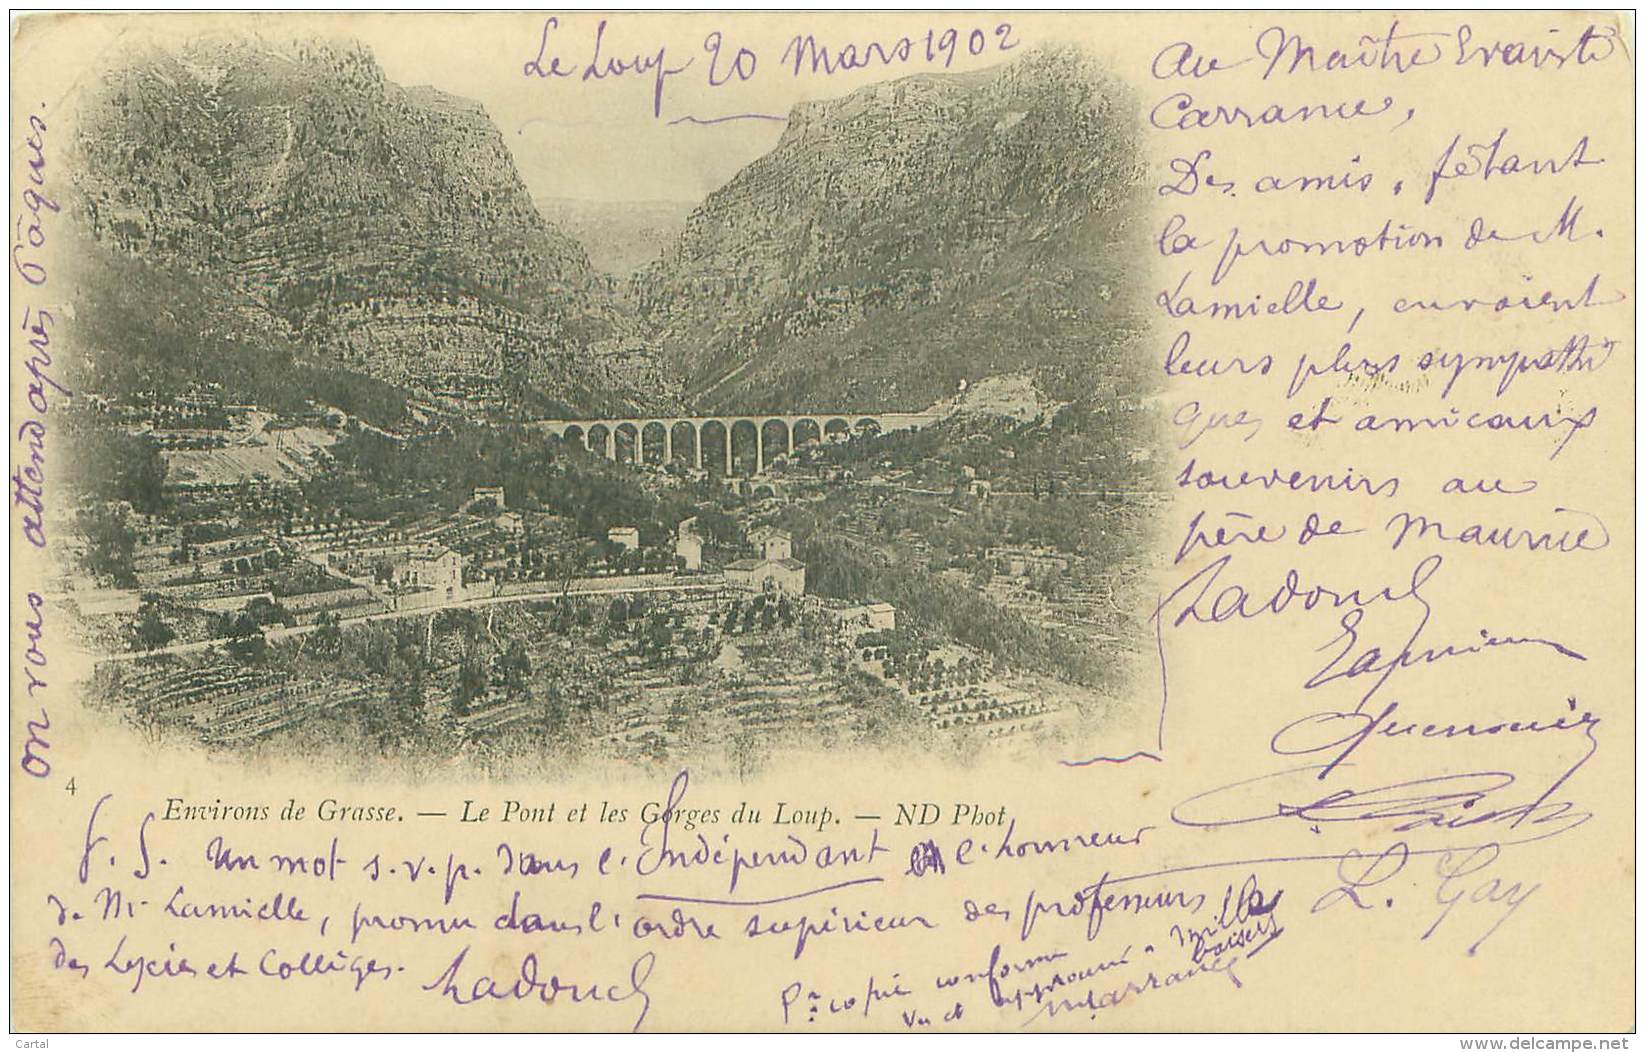 Le Loup 20 Mars 1902
Au Maître Evariste
Carrance,
Des amis, fêtant
la promotion de M.
Lamielle, envoient
leurs plus sympathi
ques et amicaux
souvenirs au
père de Maurice
Ladouch
L. Gay
on vous attend après Pâques.
4
Environs de Grasse. — Le Pont et les Gorges du Loup. — ND Phot
P. S. Un mot s.v.p. dans l'Indépendant en l'honneur
de Mr Lamielle, promu dans l'ordre supérieur des professeurs
des Lycées et Collèges.
Ladouch
Pr copie conforme
vu et approuvé. Mille
baisers
MCarrance
Cartal
http://www.delcampe.net